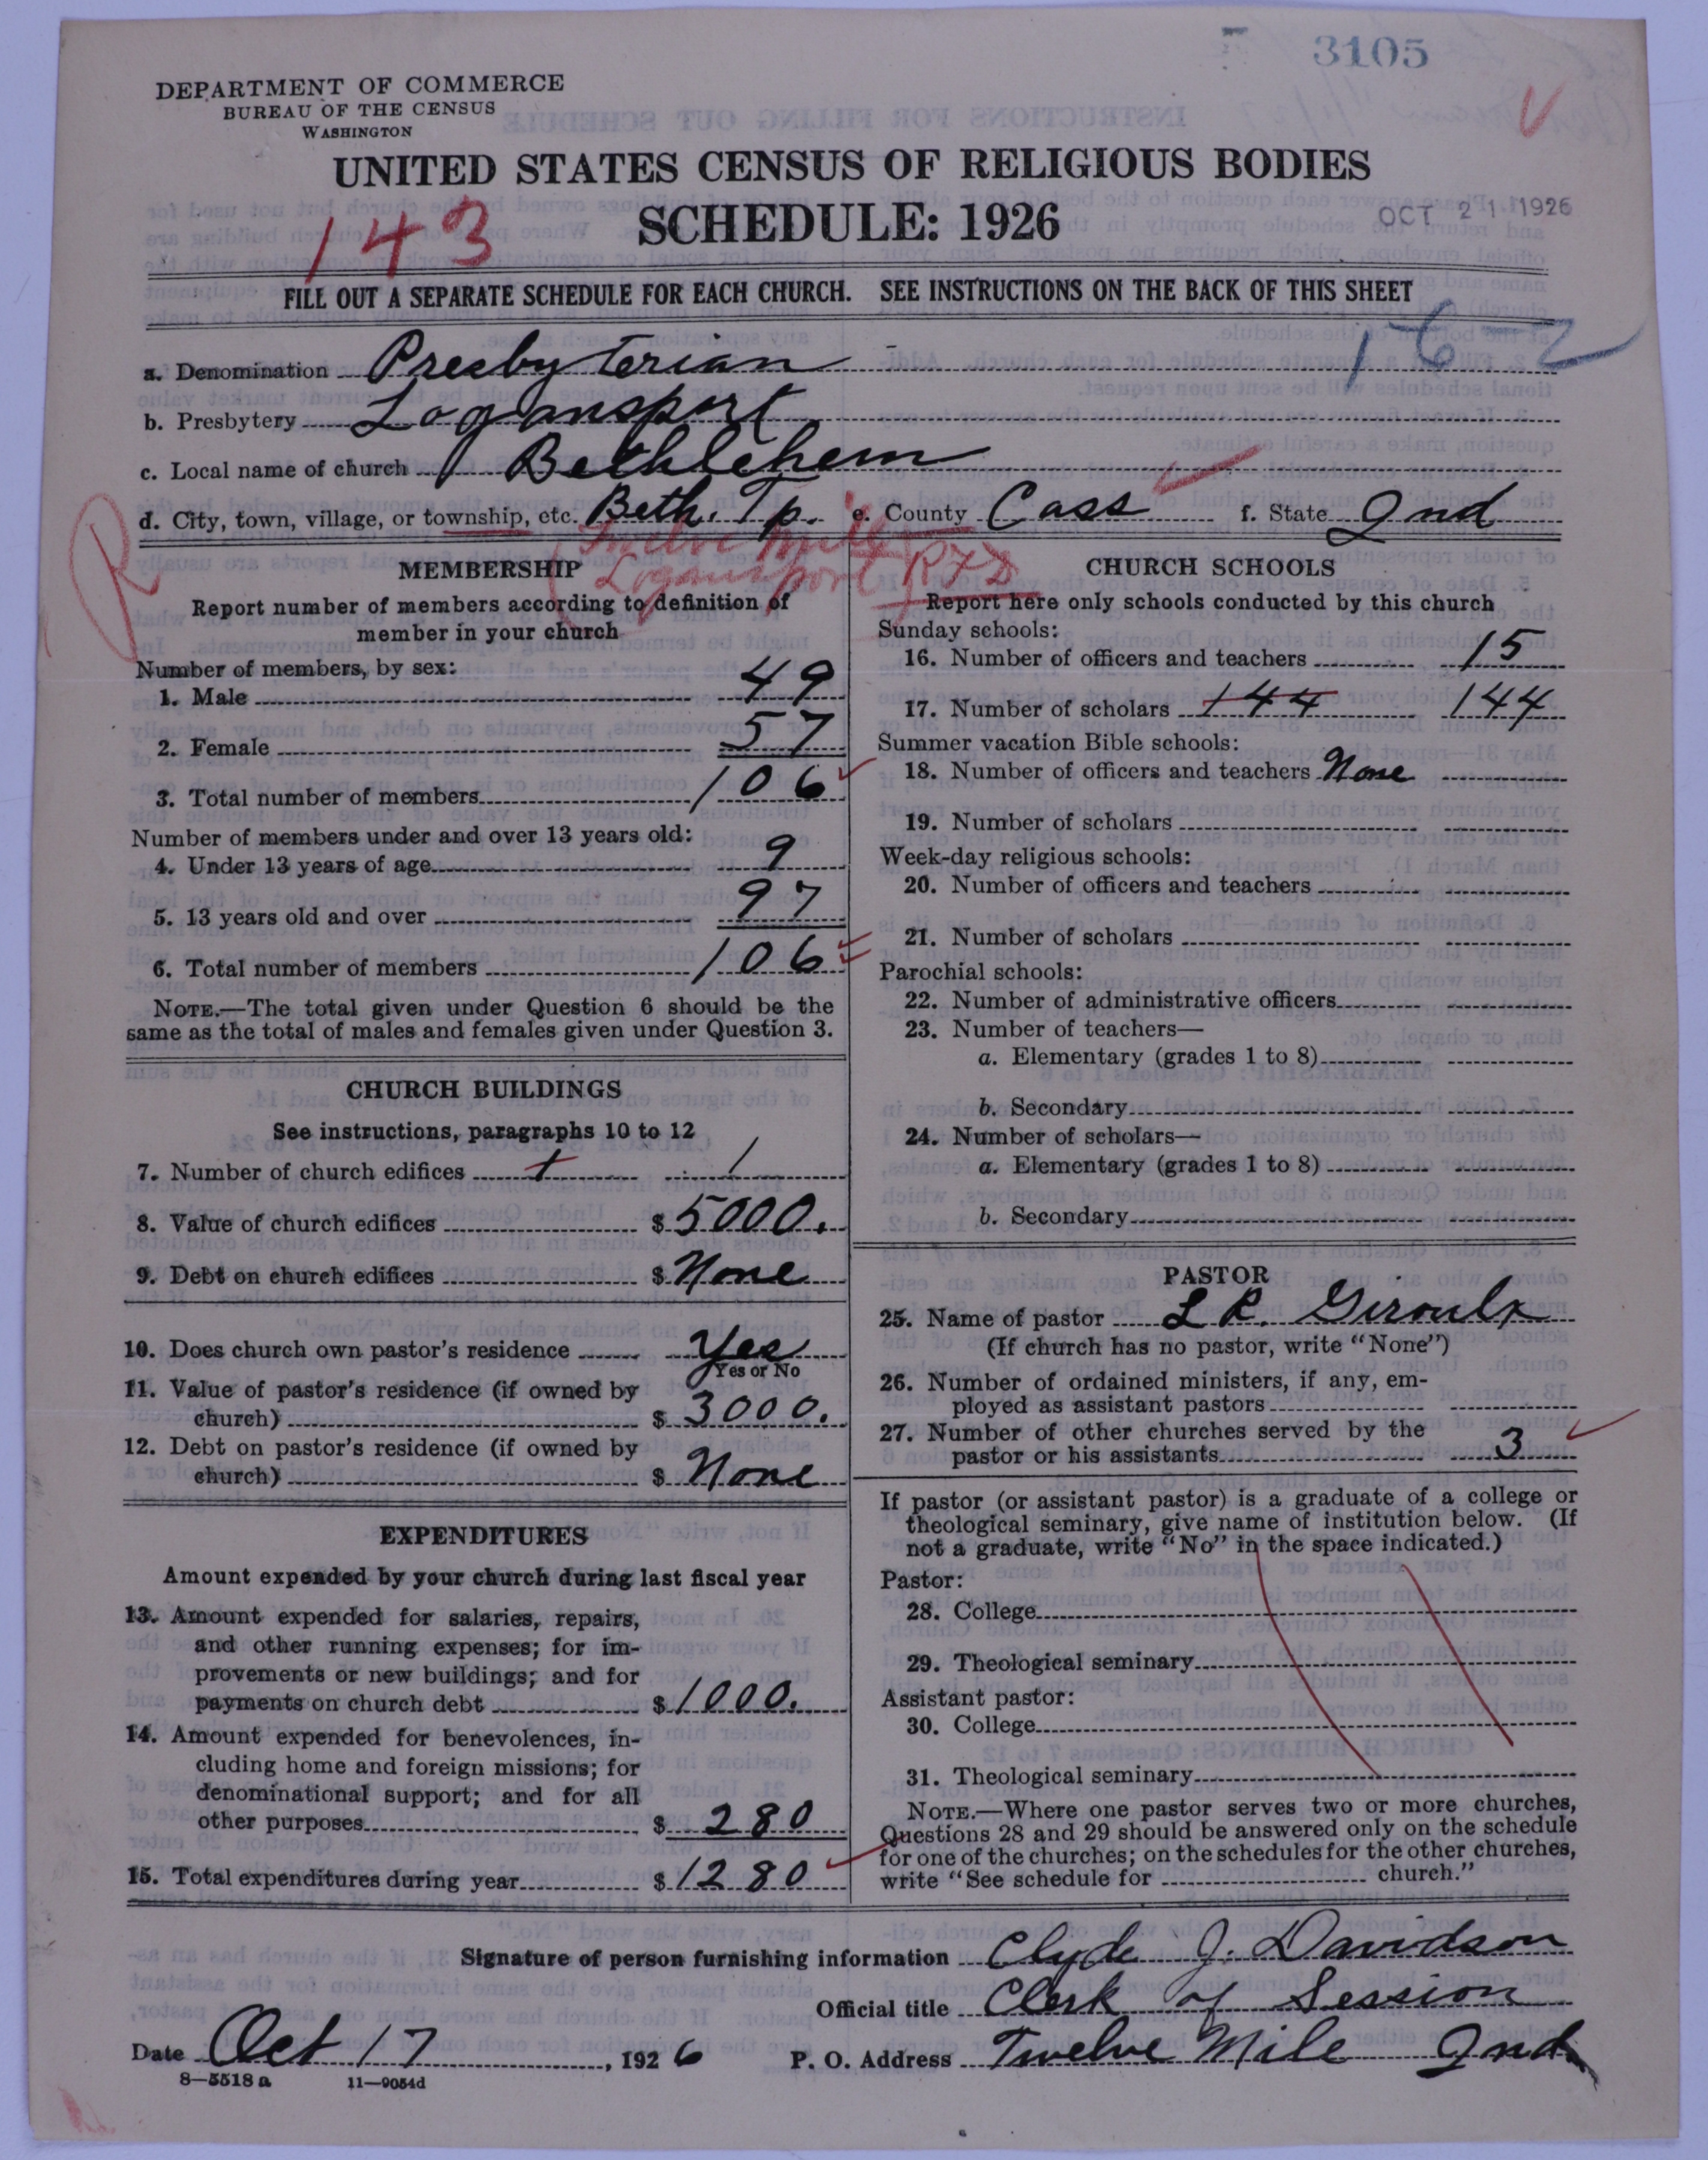 3105
DEPARTMENT OF COMMERCE
BUREAU OF THE CENSUS
WASHINGTON
UNITED STATES CENSUS OF RELIGIOUS BODIES
SCHEDULE: 1926
OCT 21 1926
143
FILL OUT A SEPARATE SCHEDULE FOR EACH CHURCH. SEE INSTRUCTIONS ON THE BACK OF THIS SHEET
a. Denomination Presbyterian
b. Presbytery Logansport
c. Local name of church Bethlehem
d. City, town, village, or township, etc. Beth. Tp. e. County Cass f. State Ind
Twelve Mile
(Logansport) RFD
R
MEMBERSHIP
Report number of members according to definition of
member in your church
Number of members, by sex:
1. Male 49
2. Female 57
3. Total number of members 106
Number of members under and over 13 years old:
4. Under 13 years of age 9
5. 13 years old and over 97
6. Total number of members 106
NOTE.—The total given under Question 6 should be the
same as the total of males and females given under Question 3.
CHURCH BUILDINGS
See instructions, paragraphs 10 to 12
7. Number of church edifices 1 1
8. Value of church edifices $ 5000.
9. Debt on church edifices $ None
10. Does church own pastor's residence Yes
Yes or No
11. Value of pastor's residence (if owned by
church) $ 3000.
12. Debt on pastor's residence (if owned by
church) $ None
EXPENDITURES
Amount expended by your church during last fiscal year
13. Amount expended for salaries, repairs,
and other running expenses; for im-
provements or new buildings; and for
payments on church debt $ 1000.
14. Amount expended for benevolences, in-
cluding home and foreign missions; for
denominational support; and for all
other purposes $ 280
15. Total expenditures during year $ 1280
CHURCH SCHOOLS
Report here only schools conducted by this church
Sunday schools:
16. Number of officers and teachers 15
17. Number of scholars 144 144
Summer vacation Bible schools:
18. Number of officers and teachers None
19. Number of scholars
Week-day religious schools:
20. Number of officers and teachers
21. Number of scholars
Parochial schools:
22. Number of administrative officers
23. Number of teachers—
a. Elementary (grades 1 to 8)
b. Secondary
24. Number of scholars—
a. Elementary (grades 1 to 8)
b. Secondary
PASTOR
25. Name of pastor L R.
(If church has no pastor, write "None")
26. Number of ordained ministers, if any, em-
ployed as assistant pastors
27. Number of other churches served by the
pastor or his assistants 3
If pastor (or assistant pastor) is a graduate of a college or
theological seminary, give name of institution below. (If
not a graduate, write "No" in the space indicated.)
Pastor:
28. College
29. Theological seminary
Assistant pastor:
30. College
31. Theological seminary
NOTE.—Where one pastor serves two or more churches,
Questions 28 and 29 should be answered only on the schedule
for one of the churches; on the schedules for the other churches,
write "See schedule for church."
Signature of person furnishing information Clyde J. Davidson
Official title Clerk of Session
Date Oct 17, 1926 P. O. Address Twelve Mile Ind
8—5518 a 11—9054d